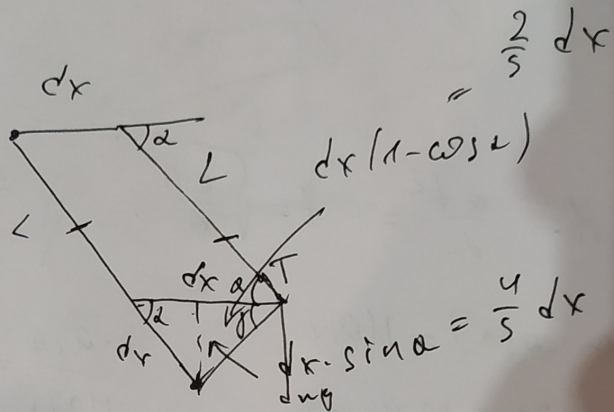 2/5 dx
=
dx
α
L
dx(1-cosα)
L
dx
α
T
α
dx
dx·sinα = 4/5 dx
dmg